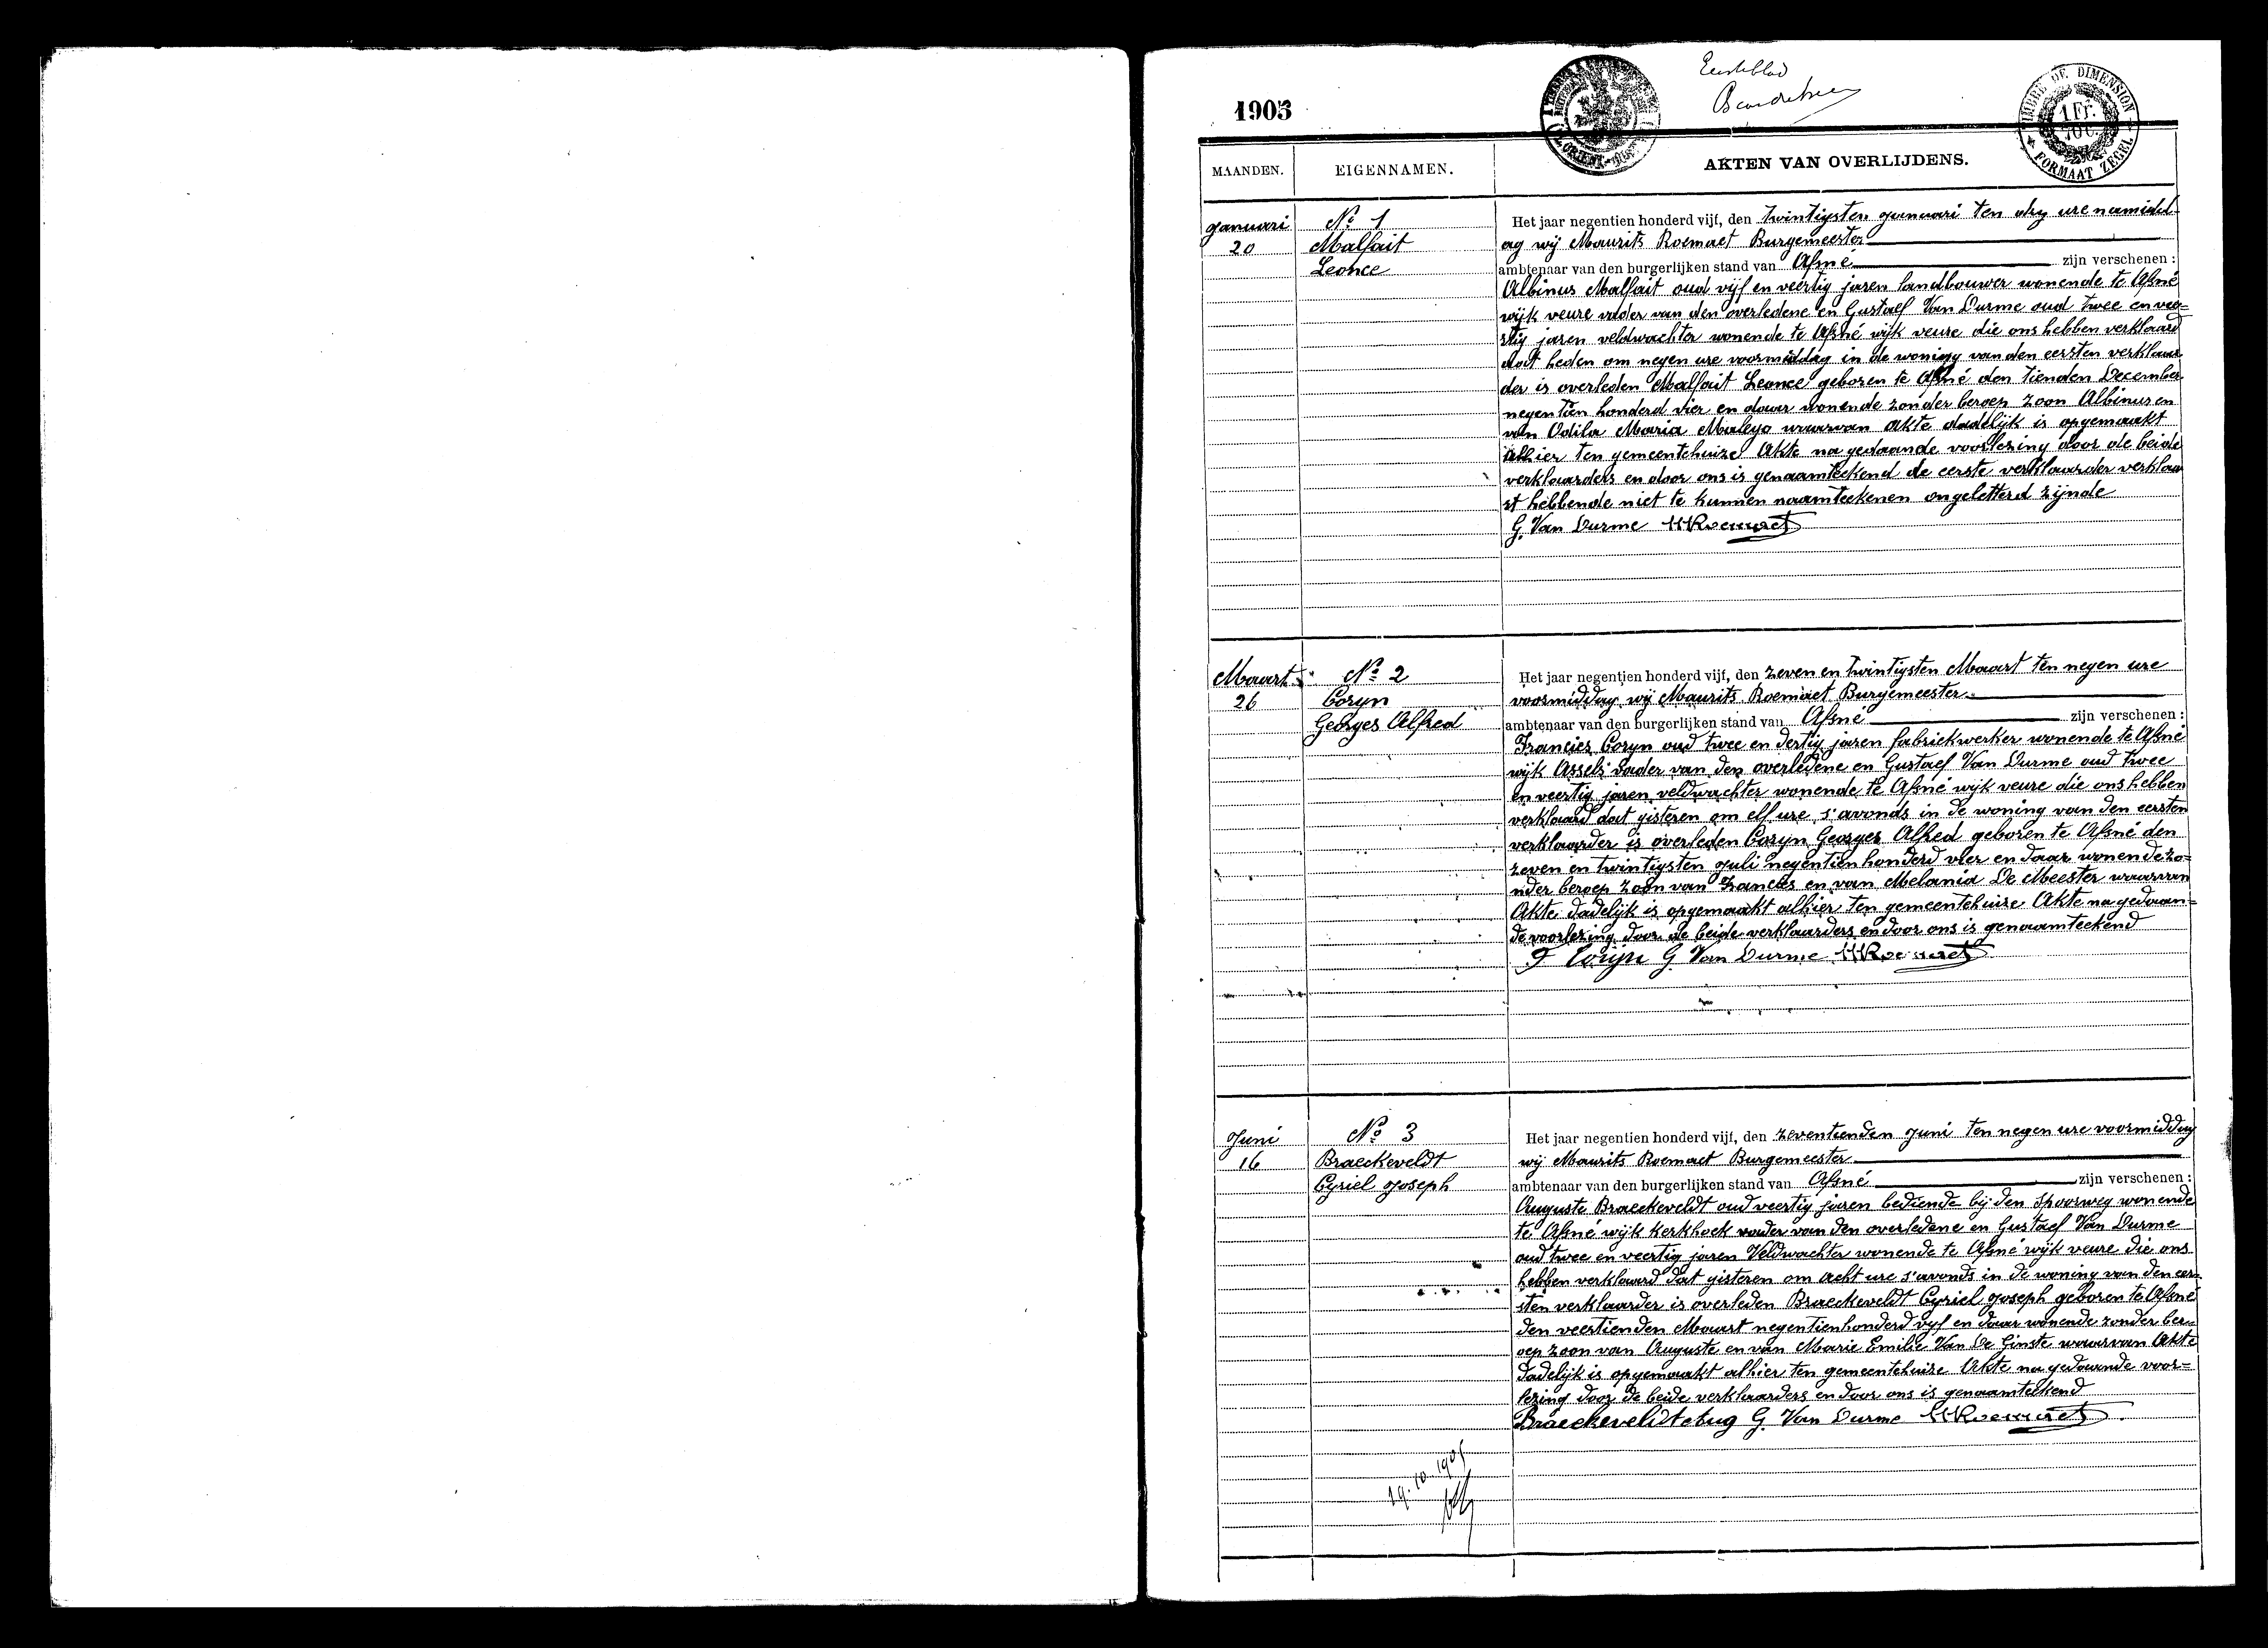 Eerste blad
1905
TIMBRE DE DIMENSION
1 Fr.
FORMAAT ZEGEL
MAANDEN. EIGENNAMEN. AKTEN VAN OVERLIJDENS.
Januari
20
No 1
Malfait
Leonce
Het jaar negentien honderd vijf, den twintigsten Januari ten dry ure namidd-
ag wij Maurits Roemaet Burgemeester
ambtenaar van den burgerlijken stand van Afsné zijn verschenen :
Albinus Malfait oud vijf en veertig jaren landbouwer wonende te Afsné
wijk veure vader van den overledene en Gustaef Van Durme oud twee en vee-
rtig jaren veldwachter wonende te Afsné wijk veure die ons hebben verklaard
dat heden om negen ure voormiddag in de woning van den eersten verklaar
der is overleden Malfait Leonce geboren te Afsné den tienden December
negentien honderd vier en daar wonende zonder beroep zoon Albinus en
van Odila Maria Maleyo waarvan akte dadelijk is opgemaakt
alhier ten gemeentehuize Akte na gedaande voorlezing door de beide
verklaarders en door ons is genaamteekend de eerste verklaarder verklaa
rt hebbende niet te kunnen naamteekenen ongeletterd zijnde
G. Van Durme MRoemaet
Maart
26
No 2
Coryn
Georges Alfred
Het jaar negentien honderd vijf, den zeven en twintigsten Maart ten negen ure
voormiddag wij Maurits Roemaet Burgemeester
ambtenaar van den burgerlijken stand van Afsné zijn verschenen :
Francies Coryn oud twee en dertig jaren fabriekwerker wonende te Afsné
wijk Assels vader van den overledene en Gustaef Van Durme oud twee
en veertig jaren veldwachter wonende te Afsné wijk veure die ons hebben
verklaard dat gisteren om elf ure s'avonds in de woning van den eersten
verklaarder is overleden Coryn Georges Alfred geboren te Afsné den
zeven en twintigsten Juli negentien honderd vier en daar wonende zo-
nder beroep zoon van Francies en van Melania De Meester waarvan
Akte dadelijk is opgemaakt alhier ten gemeentehuize Akte na gedaan-
de voorlezing door de beide verklaarders en door ons is genaamteekend
F Corijn G. Van Durme MRoemaet
Juni
16
No 3
Braeckeveldt
Cyriel Joseph
Het jaar negentien honderd vijf, den zeventienden Juni ten negen ure voormiddag
wij Maurits Roemaet Burgemeester
ambtenaar van den burgerlijken stand van Afsné zijn verschenen :
Auguste Braeckeveldt oud veertig jaren bediende bij den spoorweg wonende
te Afsné wijk kerkhoek vader van den overledene en Gustaef Van Durme
oud twee en veertig jaren Veldwachter wonende te Afsné wijk veure die ons
hebben verklaard dat gisteren om acht ure s'avonds in de woning van den eer-
sten verklaarder is overleden Braeckeveldt Cyriel Joseph geboren te Afsné
den veertienden Maart negentienhonderd vyf en daar wonende zonder ber-
oep zoon van Auguste en van Marie Emilie Van De Ginste waarvan Akte
dadelijk is opgemaakt alhier ten gemeentehuize Akte na gedaande voor-
lezing door de beide verklaarders en door ons is genaamteekend
Braeckeveldt Aug G. Van Durme MRoemaet
19.10.1905